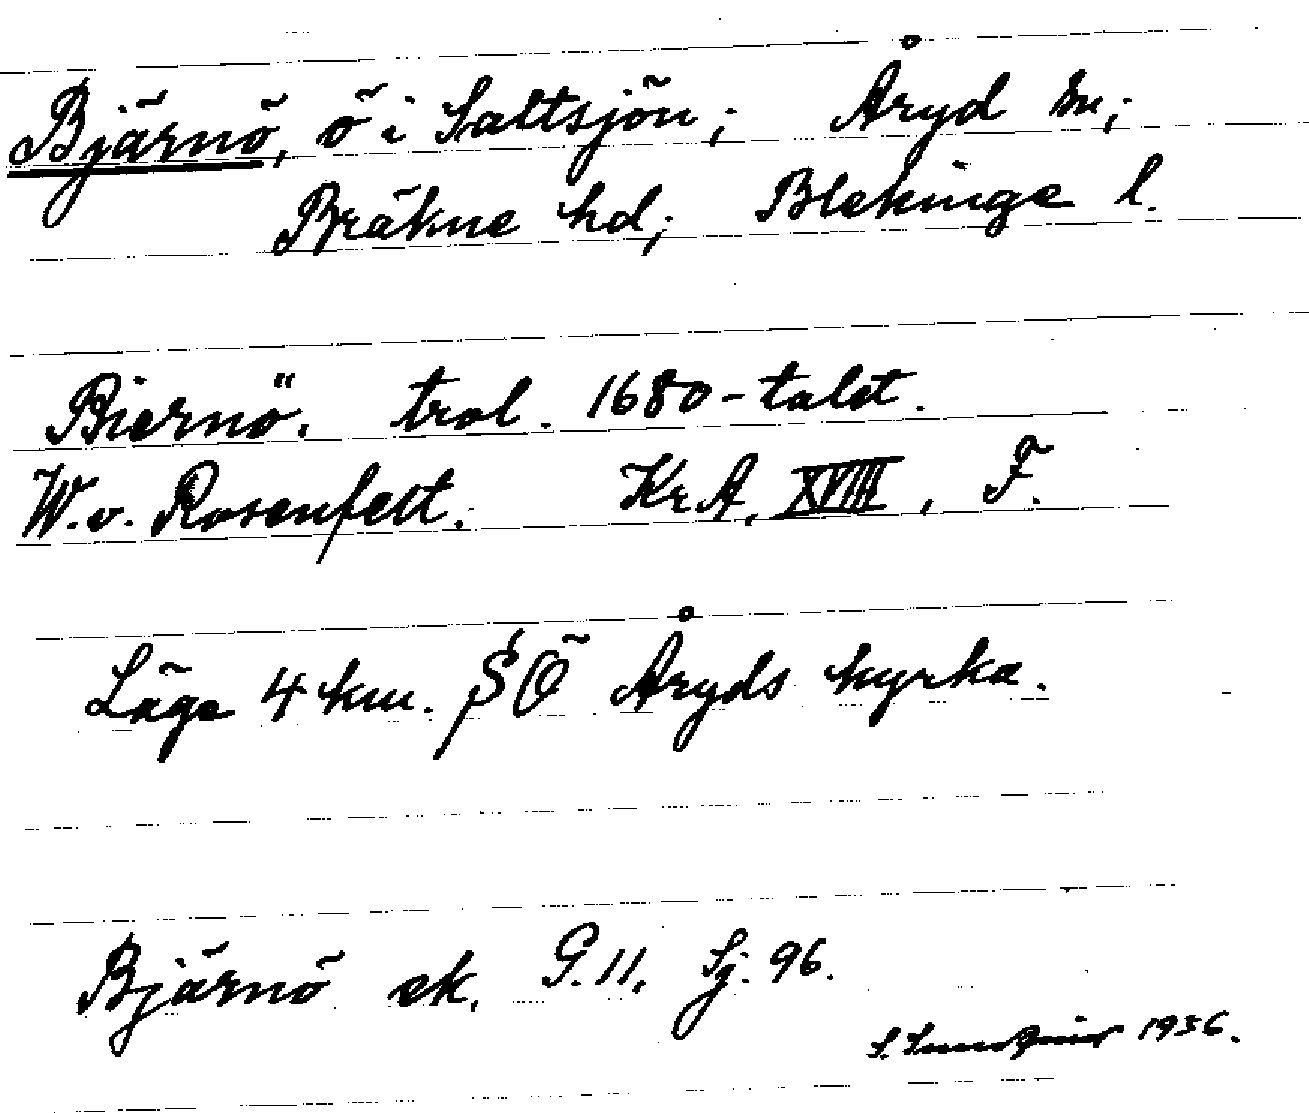 Bjärnö, ö i Saltsjön; Åryd sn;
Bräkne hd; Blekinge l.
Biernö. trol. 1680-talet.
W. v. Rosenfelt. Kr A, XVIII, F.
Läge 4 km. SÖ Åryds kyrka.
Bjärnö ek. G. 11. Sj. 96.
S. 1936.